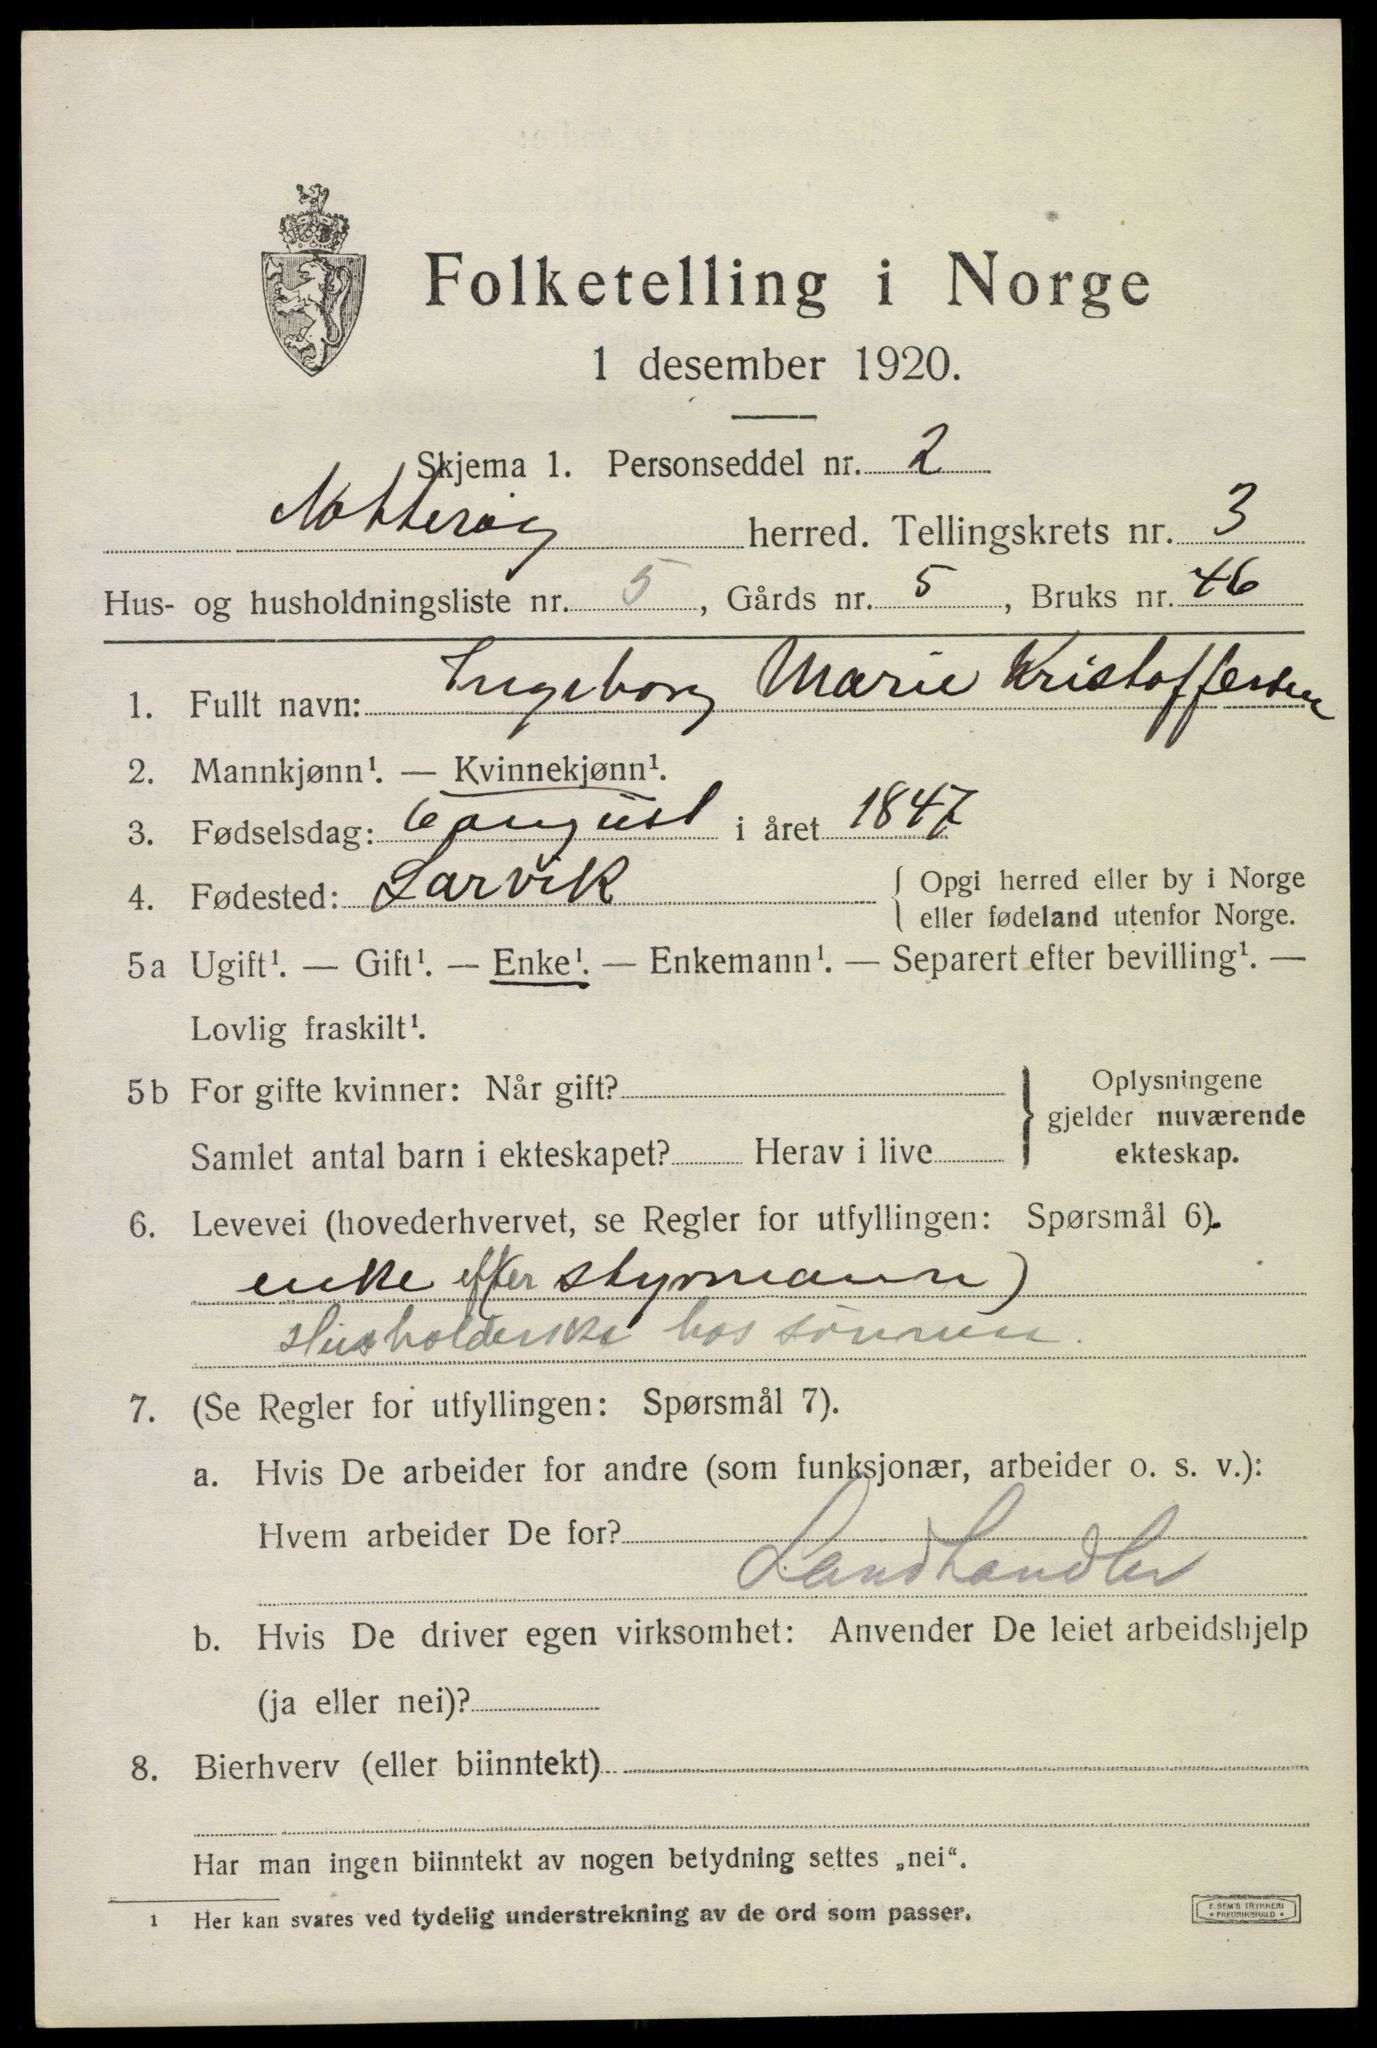 Folketelling i Norge
1 desember 1920.
Skjema 1. Personseddel nr. 2
Nøtterøy herred. Tellingskrets nr. 3
Hus- og husholdningsliste nr. 5, Gårds nr. 5, Bruks nr. 46
1. Fullt navn: Ingeborg Marie Kristoffersen
2. Mannkjønn¹. — Kvinnekjønn¹.
3. Fødselsdag: 6 august i året 1847
4. Fødested: Larvik { Opgi herred eller by i Norge
eller fødeland utenfor Norge.
5a Ugift¹. — Gift¹. — Enke¹. — Enkemann¹. — Separert efter bevilling¹. —
Lovlig fraskilt¹.
5b For gifte kvinner: Når gift? } Oplysningene
gjelder nuværende
Samlet antal barn i ekteskapet? Herav i live ekteskap.
6. Levevei (hovederhvervet, se Regler for utfyllingen: Spørsmål 6).
enke efter styrmann)
Husholderske hos sønnen.
7. (Se Regler for utfyllingen: Spørsmål 7).
a. Hvis De arbeider for andre (som funksjonær, arbeider o. s. v.):
Hvem arbeider De for?
Landhandler
b. Hvis De driver egen virksomhet: Anvender De leiet arbeidshjelp
(ja eller nei)?
8. Bierhverv (eller biinntekt)
Har man ingen biinntekt av nogen betydning settes „nei“.
1 Her kan svares ved tydelig understrekning av de ord som passer.
E. SEM'S TRYKKERI
• FREDRIKSHALD •